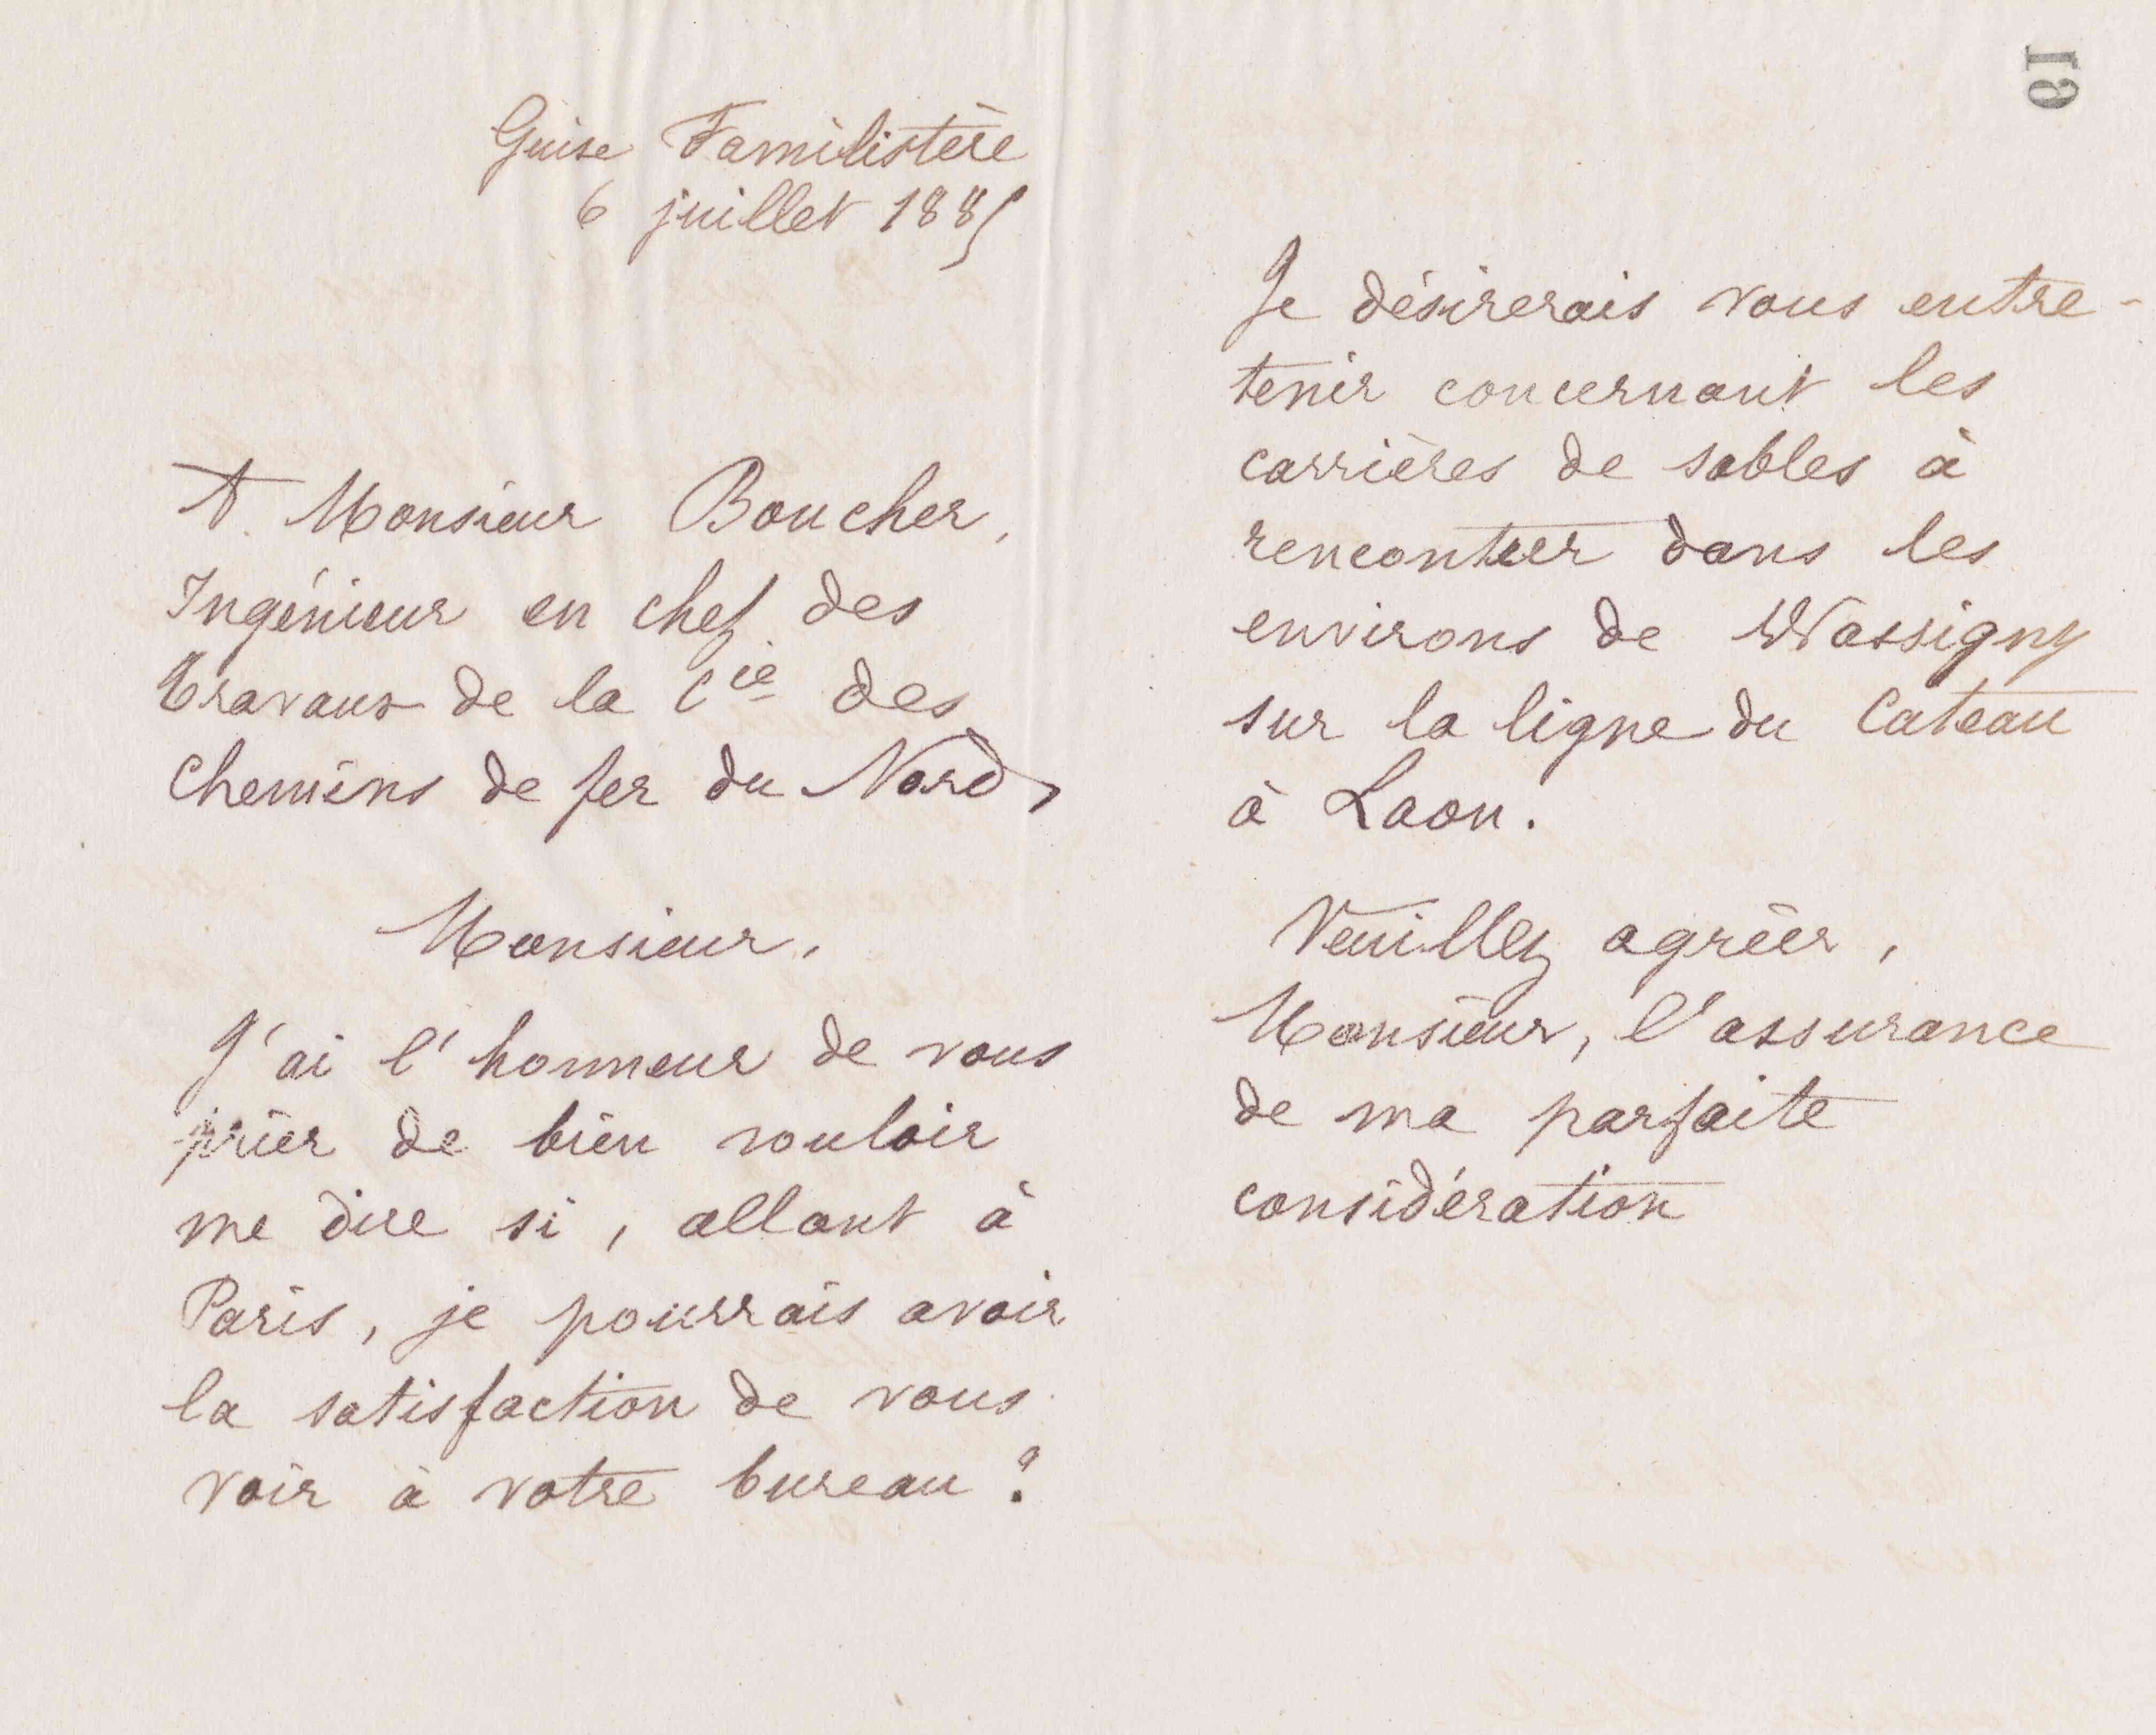 Guise Familistère
6 juillet 1885
A Monsieur Boucher,
Ingénieur en chef des
Travaux de la Cie des
Chemins de fer du Nord,
Monsieur,
J'ai l'honneur de vous
prier de bien vouloir
me dire si, allant à
Paris, je pourrais avoir
la satisfaction de vous
voir à votre bureau ?
19
Je désirerais vous entre-
tenir concernant les
carrières de sables à
rencontrer dans les
environs de Wassigny
sur la ligne du Cateau
à Laon.
Veuillez agréer,
Monsieur, l'assurance
de ma parfaite
considération